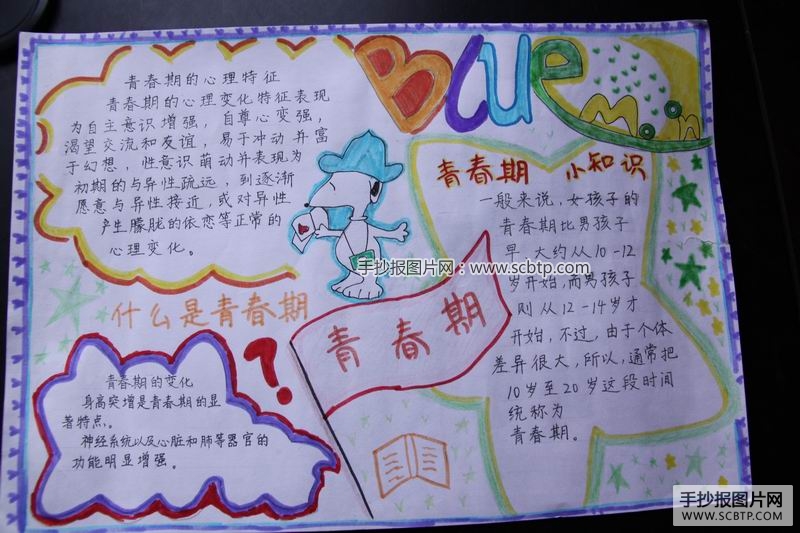 BLUE
Moon
青春期的心理特征
青春期的心理变化特征表现
为自主意识增强，自尊心变强，
渴望交流和友谊，易于冲动并富
于幻想，性意识萌动并表现为
初期的与异性疏远，到逐渐
愿意与异性接近，或对异性
产生朦胧的依恋等正常的
心理变化。
青春期 小知识
一般来说，女孩子的
青春期比男孩子
早 大约从10-12
岁开始，而男孩子
则从12-14岁才
开始，不过，由于个体
差异很大，所以，通常把
10岁至20岁这段时间
统称为
青春期。
手抄报图片网：www.scbtp.com
什么是青春期
?
青春期
青春期的变化
身高突增是青春期的显
著特点。
神经系统以及心脏和肺等器官的
功能明显增强。
手抄报图片网
WWW.SCBTP.COM